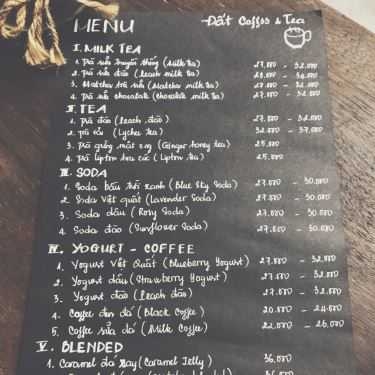 MENU
Đất Coffee & Tea
I. MILK TEA
1. Trà sữa truyền thống (Milk Tea) 27.000 - 32.000
2. Trà sữa đào (Peach milk tea) 27.000 - 32.000
3. Matcha trà sữa (Matcha milk tea) 27.000 - 32.000
4. Trà sữa chocolate (Chocolate milk tea) 27.000 - 32.000
II. TEA
1. Trà đào (Peach đào) 27.000 - 32.000
2. Trà vải (Lychee Tea) 32.000 - 37.000
3. Trà gừng mật ong (Ginger honey tea) 25.000
4. Trà lipton (Lipton tea) 25.000
III. SODA
1. Soda bầu trời xanh (Blue Sky Soda) 27.000 - 30.000
2. Soda Việt quất (Lavender Soda) 27.000 - 30.000
3. Soda dâu (Rosy Soda) 27.000 - 30.000
4. Soda đào (Sunflower Soda) 27.000 - 30.000
IV. YOGURT - COFFEE
1. Yogurt Việt Quất (Blueberry Yogurt) 27.000 - 32.000
2. Yogurt dâu (Strawberry Yogurt) 27.000 - 32.000
3. Yogurt đào (Peach đào) 27.000 - 32.000
4. Coffee đen đá (Black Coffee) 20.000 - 24.000
5. Coffee sữa đá (Milk Coffee) 22.000 - 26.000
V. BLENDED
1. Caramel đá xay (Caramel Jelly) 36.000